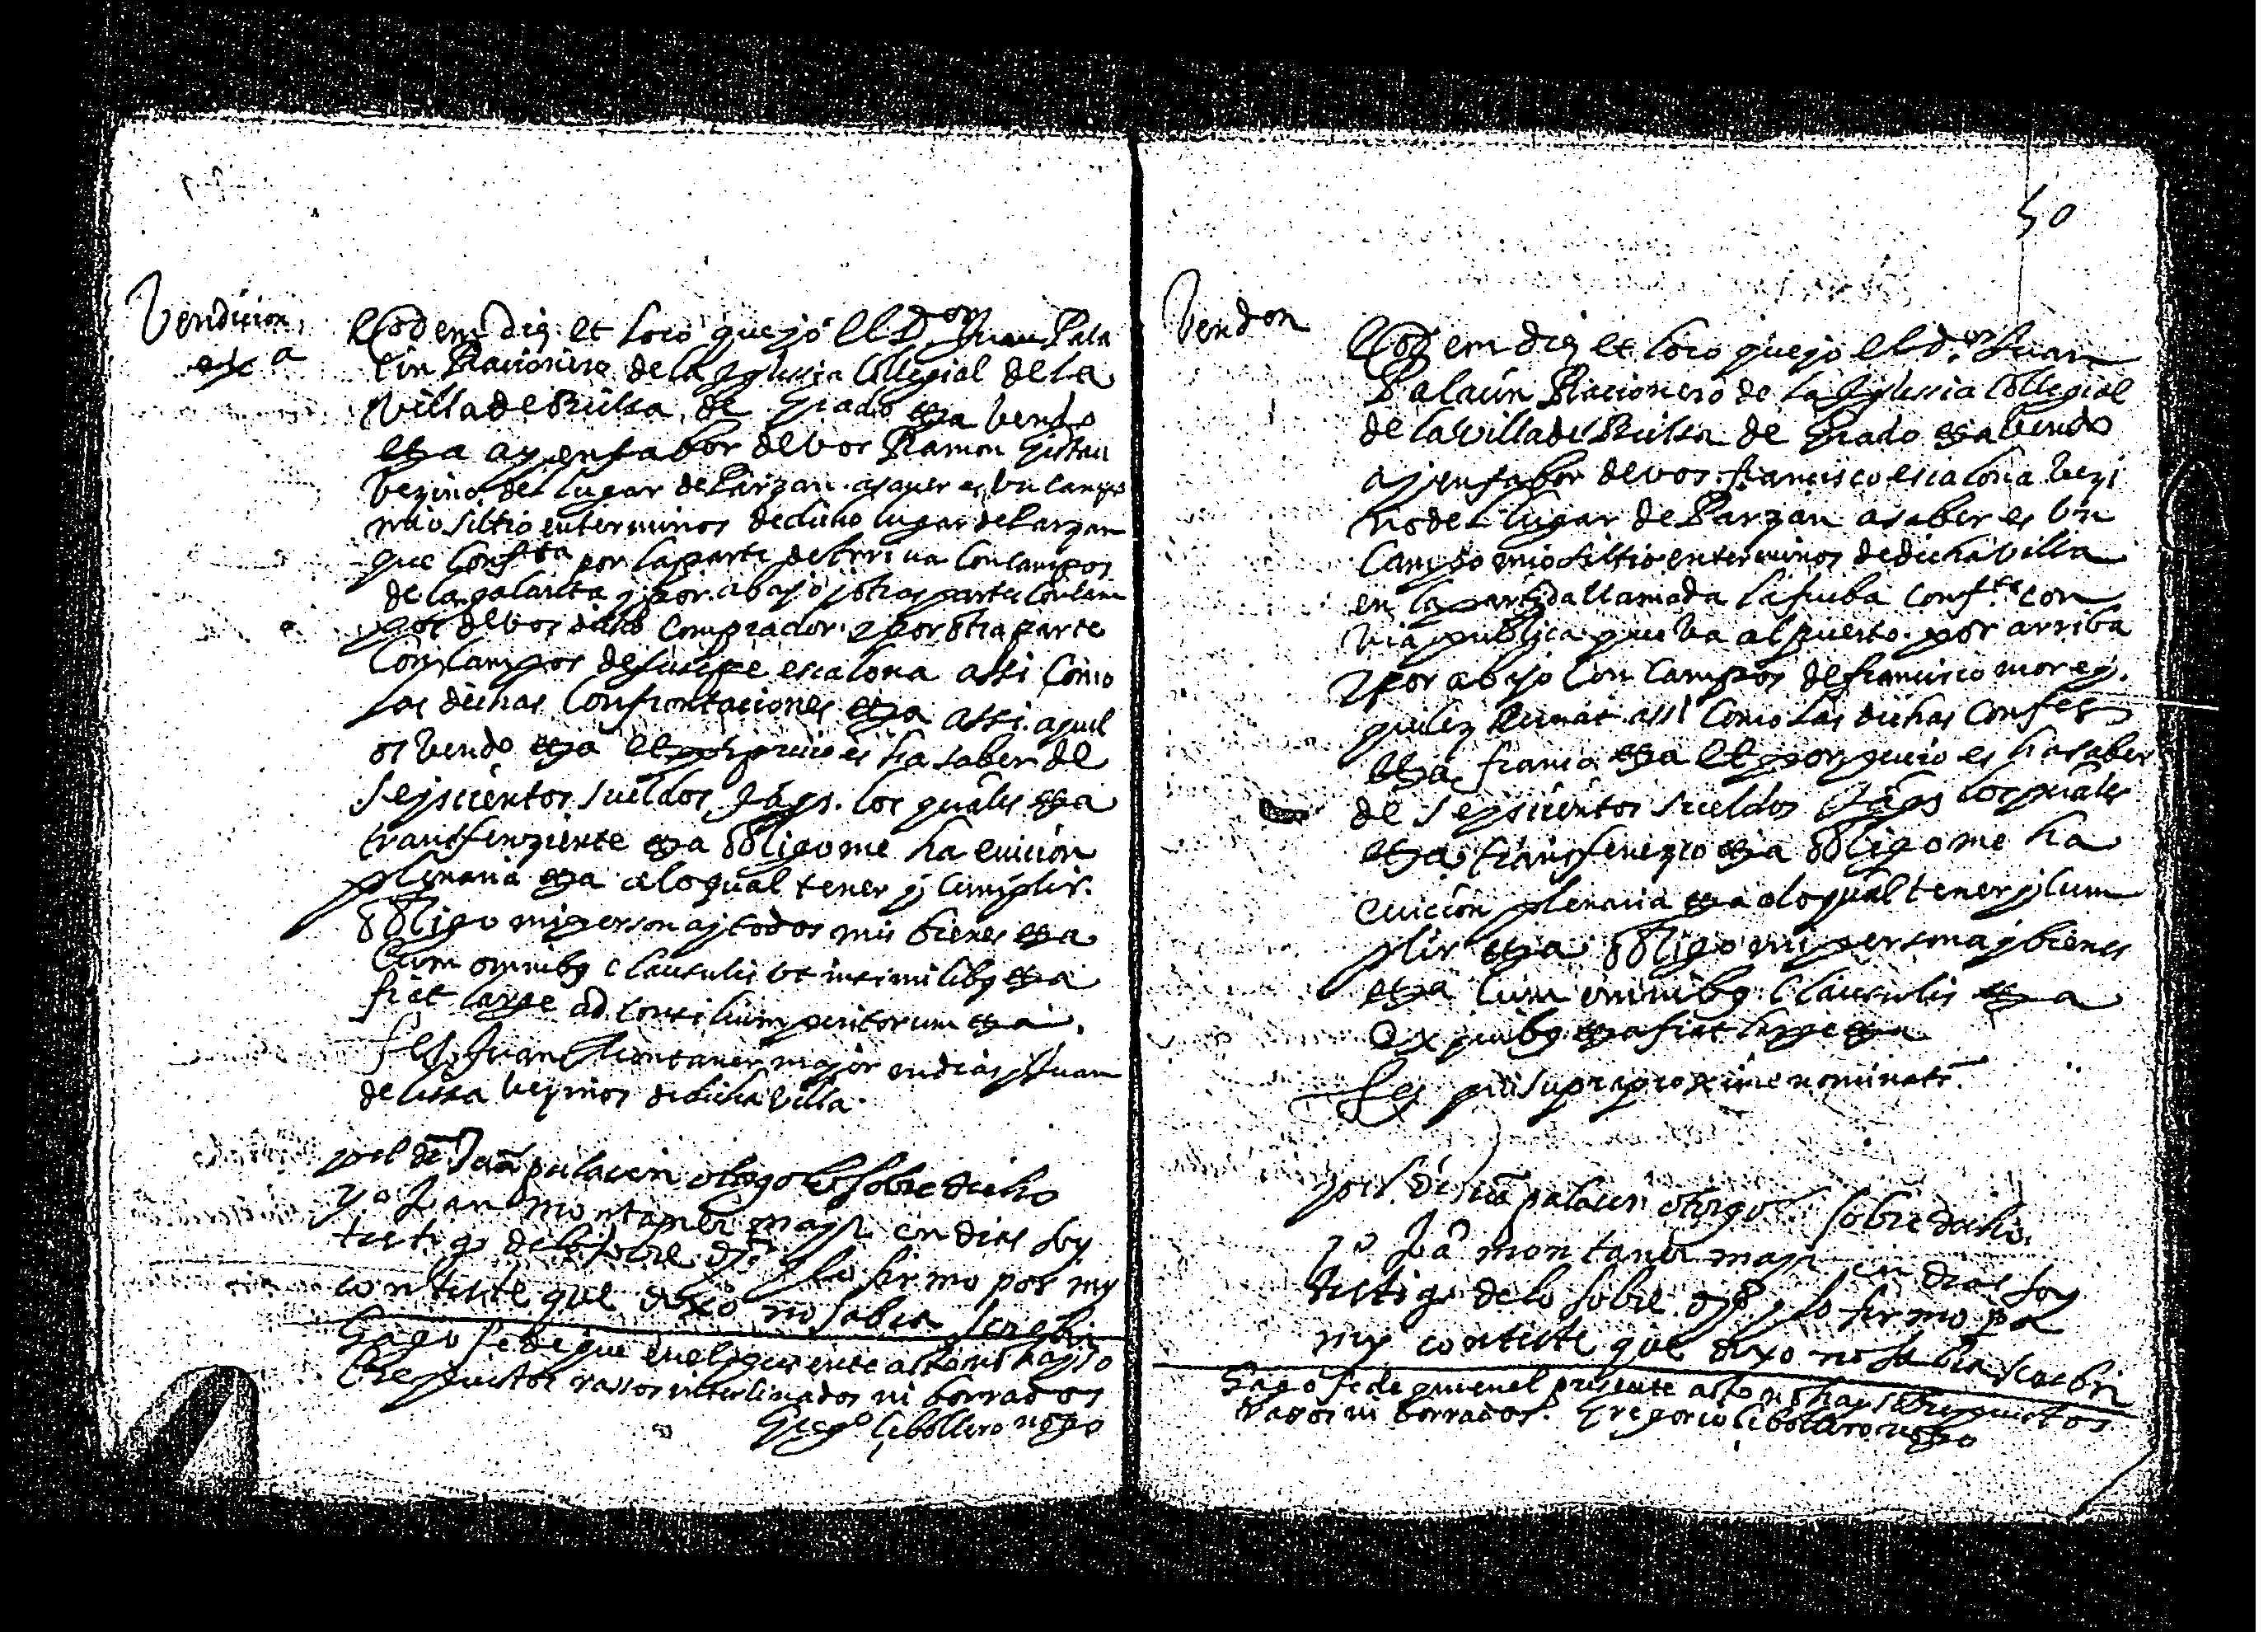 Vendicion
ex.a
Eodem die et loco que yo El D.or Juan Pala
cin Racionero de la Yglesia Collegial de la
Villa de Bielsa de Grado etta vendo
etta a y en fabor de vos Ramon Gistau
Vezino del lugar de Parzan. asauer es, un campo
mio sittio en terminos de dicho lugar de Parzan
que Conf.ta por la parte de arriua con campos
de la y por abajo y otras partes con cam
pos de vos dicho Comprador y por otra parte
Con Campos de escalona assi Como
las dichas Confrontaciones etta assi aquel
os vendo etta et por precio es ha saber de
Seyscientos sueldos Jaqs. los quales etta
transferiziente etta obligome ha euicion
plenaria etta a lo qual tener y cumplir.
Obligo mi persona y todos mis bienes etta
Cum omnibq clausulis ut in similibq etta
fiat large ad Consilium peritorum etta.
Tes Juan Montaner mayor en dias y Juan
de vezinos de dicha Villa.
yo el d.r Jua palacin otorgo lo sobre dicho
yo Juan montaner mayr en dias soy
testigo de lo sobre d.ho y lo firmo por my
conteste que dixo no sabia screbir
Hago fe de que en el presente acto no hay so
brepuestos rassos interlinados ni borrados
Greg.o Cebollero not.o
50
Vendon
Eodem die et loco que yo el d.or Juan
Palacin Racionero de la Yglessia Collegial
de la Villa de Bielsa de Grado etta vendo
a y en fabor de vos francisco escalona Vezi
no del lugar de Parzan a saber es Un
Campo mio sittio en terminos de dicha Villa
en la partida llamada la conf.te con
via publica que va al puerto. por arriba
y por abajo Con Campos de francisco
assi Como las dichas Conf.es
etta franco etta et por precio es ha saber
de Seyscientos sueldos Jaqs los quales
etta transferezco etta obligome ha
euicion plenaria etta a lo qual tener y cum
plir etta obligo mi persona y bienes
etta Cum omnibq Clausulis etta
Ex quibq etta fiat large etta
Tes qui supra proxime nominati.
yo el d.r Jua palacin otorgo sobre dicho.
yo Jua montaner mayr en dias soy
testigo de lo sobre d.ho y lo firmo por
my conteste que dixo no sabia screbir
Hago fe de que en el presente acto no hay sobrepuestos
rassos ni borrados. Gregorio Cebollero not.o